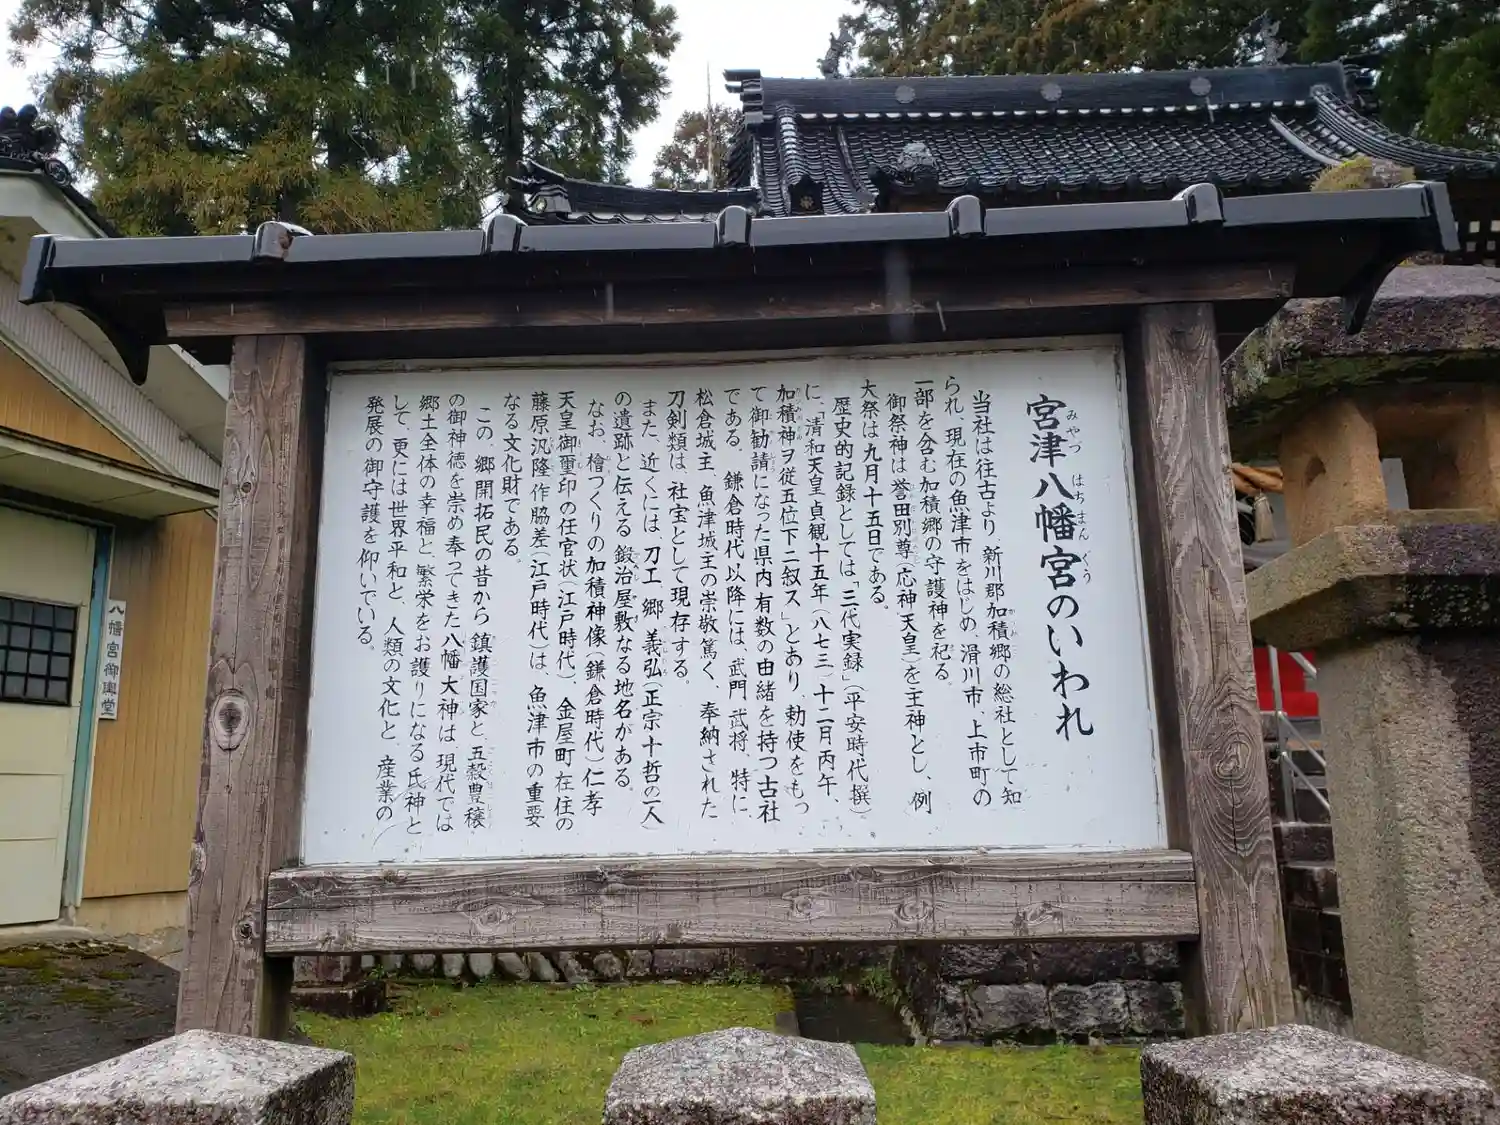 宮津八幡宮のいわれ
当社は往古より、新川郡加積郷の総社として知
られ、現在の魚津市をはじめ、滑川市、上市町の
一部を含む加積郷の守護神を祀る。
御祭神は誉田別尊(応神天皇)を主神とし、例
大祭は九月十五日である。
歴史的記録としては「三代実録」(平安時代撰)
に、「清和天皇貞観十五年(八七三)十二月丙午、
加積神ヲ従五位下二叙ス」とあり、勅使をもっ
て御勧請になった県内有数の由緒を持つ古社
である。鎌倉時代以降には、武門、武将、特に、
松倉城主、魚津城主の崇敬篤く、奉納された
刀剣類は、社宝として現存する。
また、近くには、刀工 郷 義弘(正宗十哲の一人)
の遺跡と伝える鍛冶屋敷なる地名がある。
なお、檜つくりの加積神像(鎌倉時代)仁孝
天皇御璽印の任官状(江戸時代)、金屋町在住の
藤原汎隆作脇差(江戸時代)は、魚津市の重要
なる文化財である。
この、郷開拓民の昔から、鎮護国家と、五穀豊穣
の御神徳を崇め奉ってきた八幡大神は、現代では
郷土全体の幸福と、繁栄をお護りになる氏神と
して、更には世界平和と、人類の文化と、産業の
発展の御守護を仰いでいる。
八幡宮御輿堂